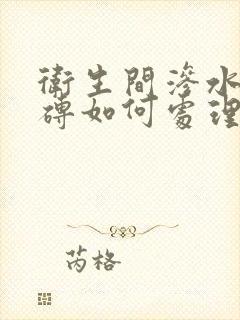 衛生間滲水
磚如何處理
芮格